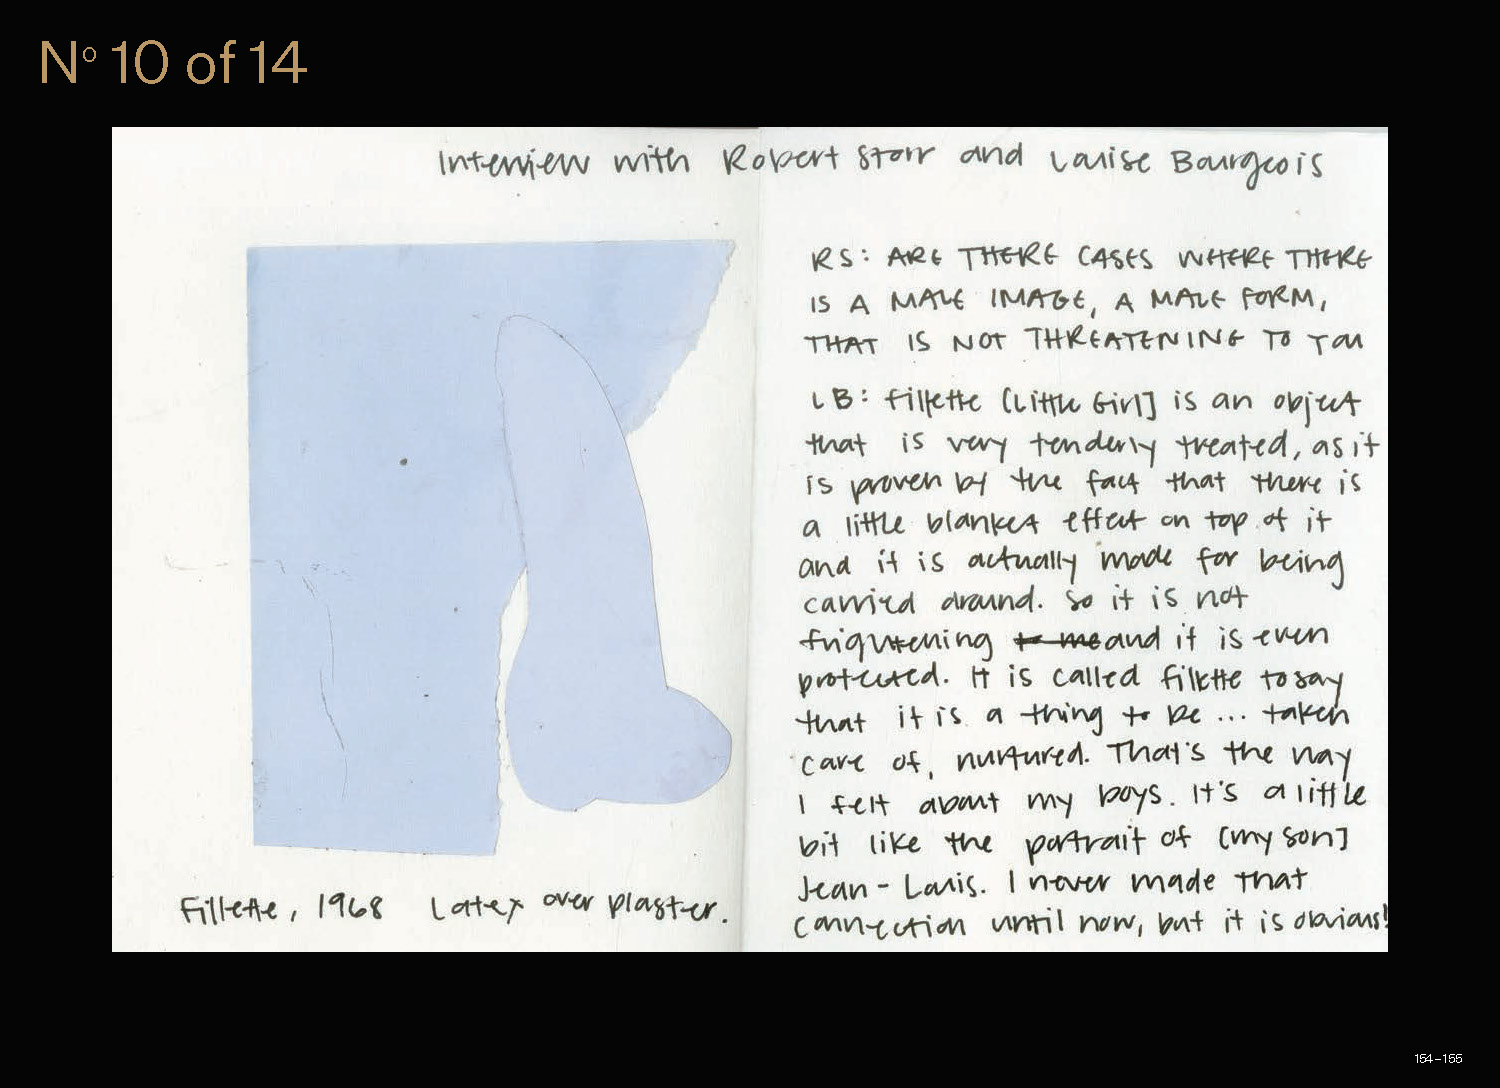 Nº 10 of 14
Interview with Robert Storr and Louise Bourgeois
RS: ARE THERE CASES WHERE THERE
IS A MALE IMAGE, A MALE FORM,
THAT IS NOT THREATENING TO YOU
LB: Fillette [Little Girl] is an object
that is very tenderly treated, as it
is proven by the fact that there is
a little blanket effect on top of it
and it is actually made for being
carried around. So it is not
frightening to me and it is even
protected. It is called fillette to say
that it is a thing to be ... taken
care of, nurtured. That's the way
I felt about my boys. It's a little
bit like the portrait of [my son]
Jean-Louis. I never made that
connection until now, but it is obvious!
Fillette, 1968 Latex over plaster.
154–155